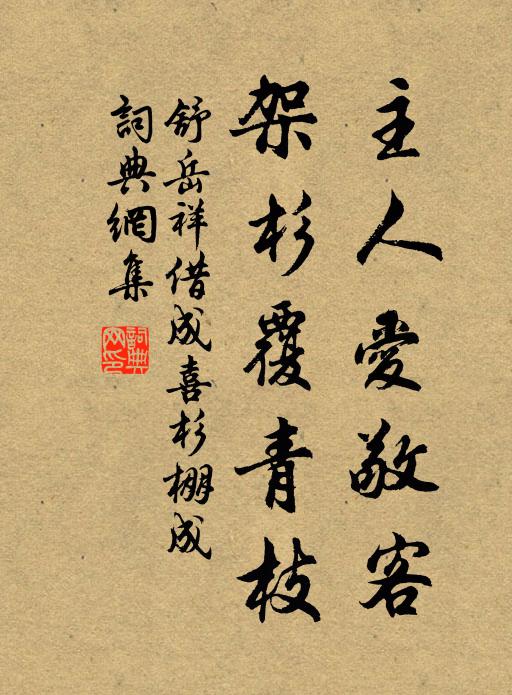 主人愛敬客
架杉覆青枝
舒岳祥借成喜杉棚成
詞典網集
詞典网印